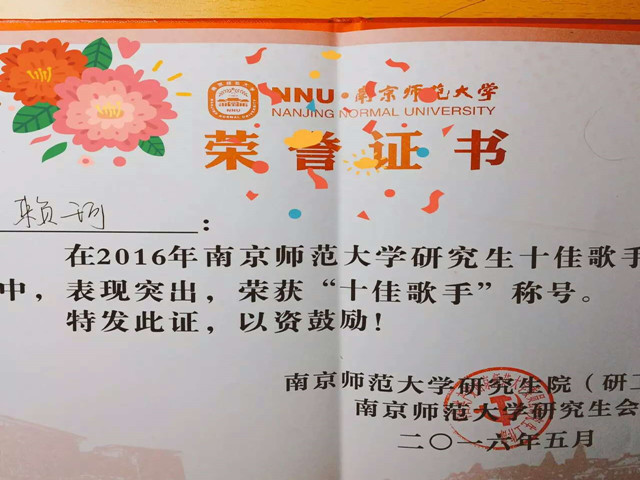 NNU·南京师范大学
NANJING NORMAL UNIVERSITY
荣誉证书
赖珂:
在2016年南京师范大学研究生十佳歌手
中，表现突出，荣获“十佳歌手”称号。
特发此证，以资鼓励！
南京师范大学研究生院（研工
南京师范大学研究生会
二〇一六年五月